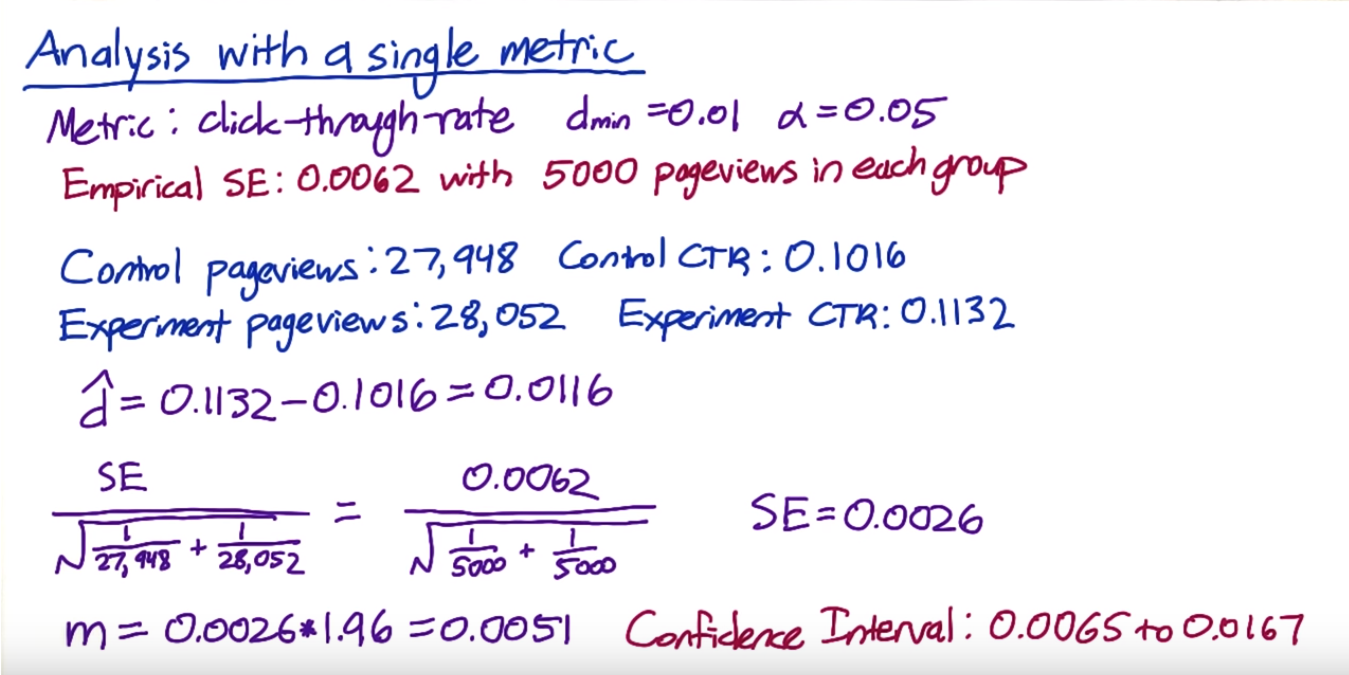 Analysis with a single metric
Metric: click-through-rate d_min = 0.01 α = 0.05
Empirical SE: 0.0062 with 5000 pageviews in each group
Control pageviews: 27,948 Control CTR: 0.1016
Experiment pageviews: 28,052 Experiment CTR: 0.1132
d̂ = 0.1132 - 0.1016 = 0.0116
SE / √(1/27,948 + 1/28,052) = 0.0062 / √(1/5000 + 1/5000) SE = 0.0026
m = 0.0026 * 1.96 = 0.0051 Confidence Interval: 0.0065 to 0.0167